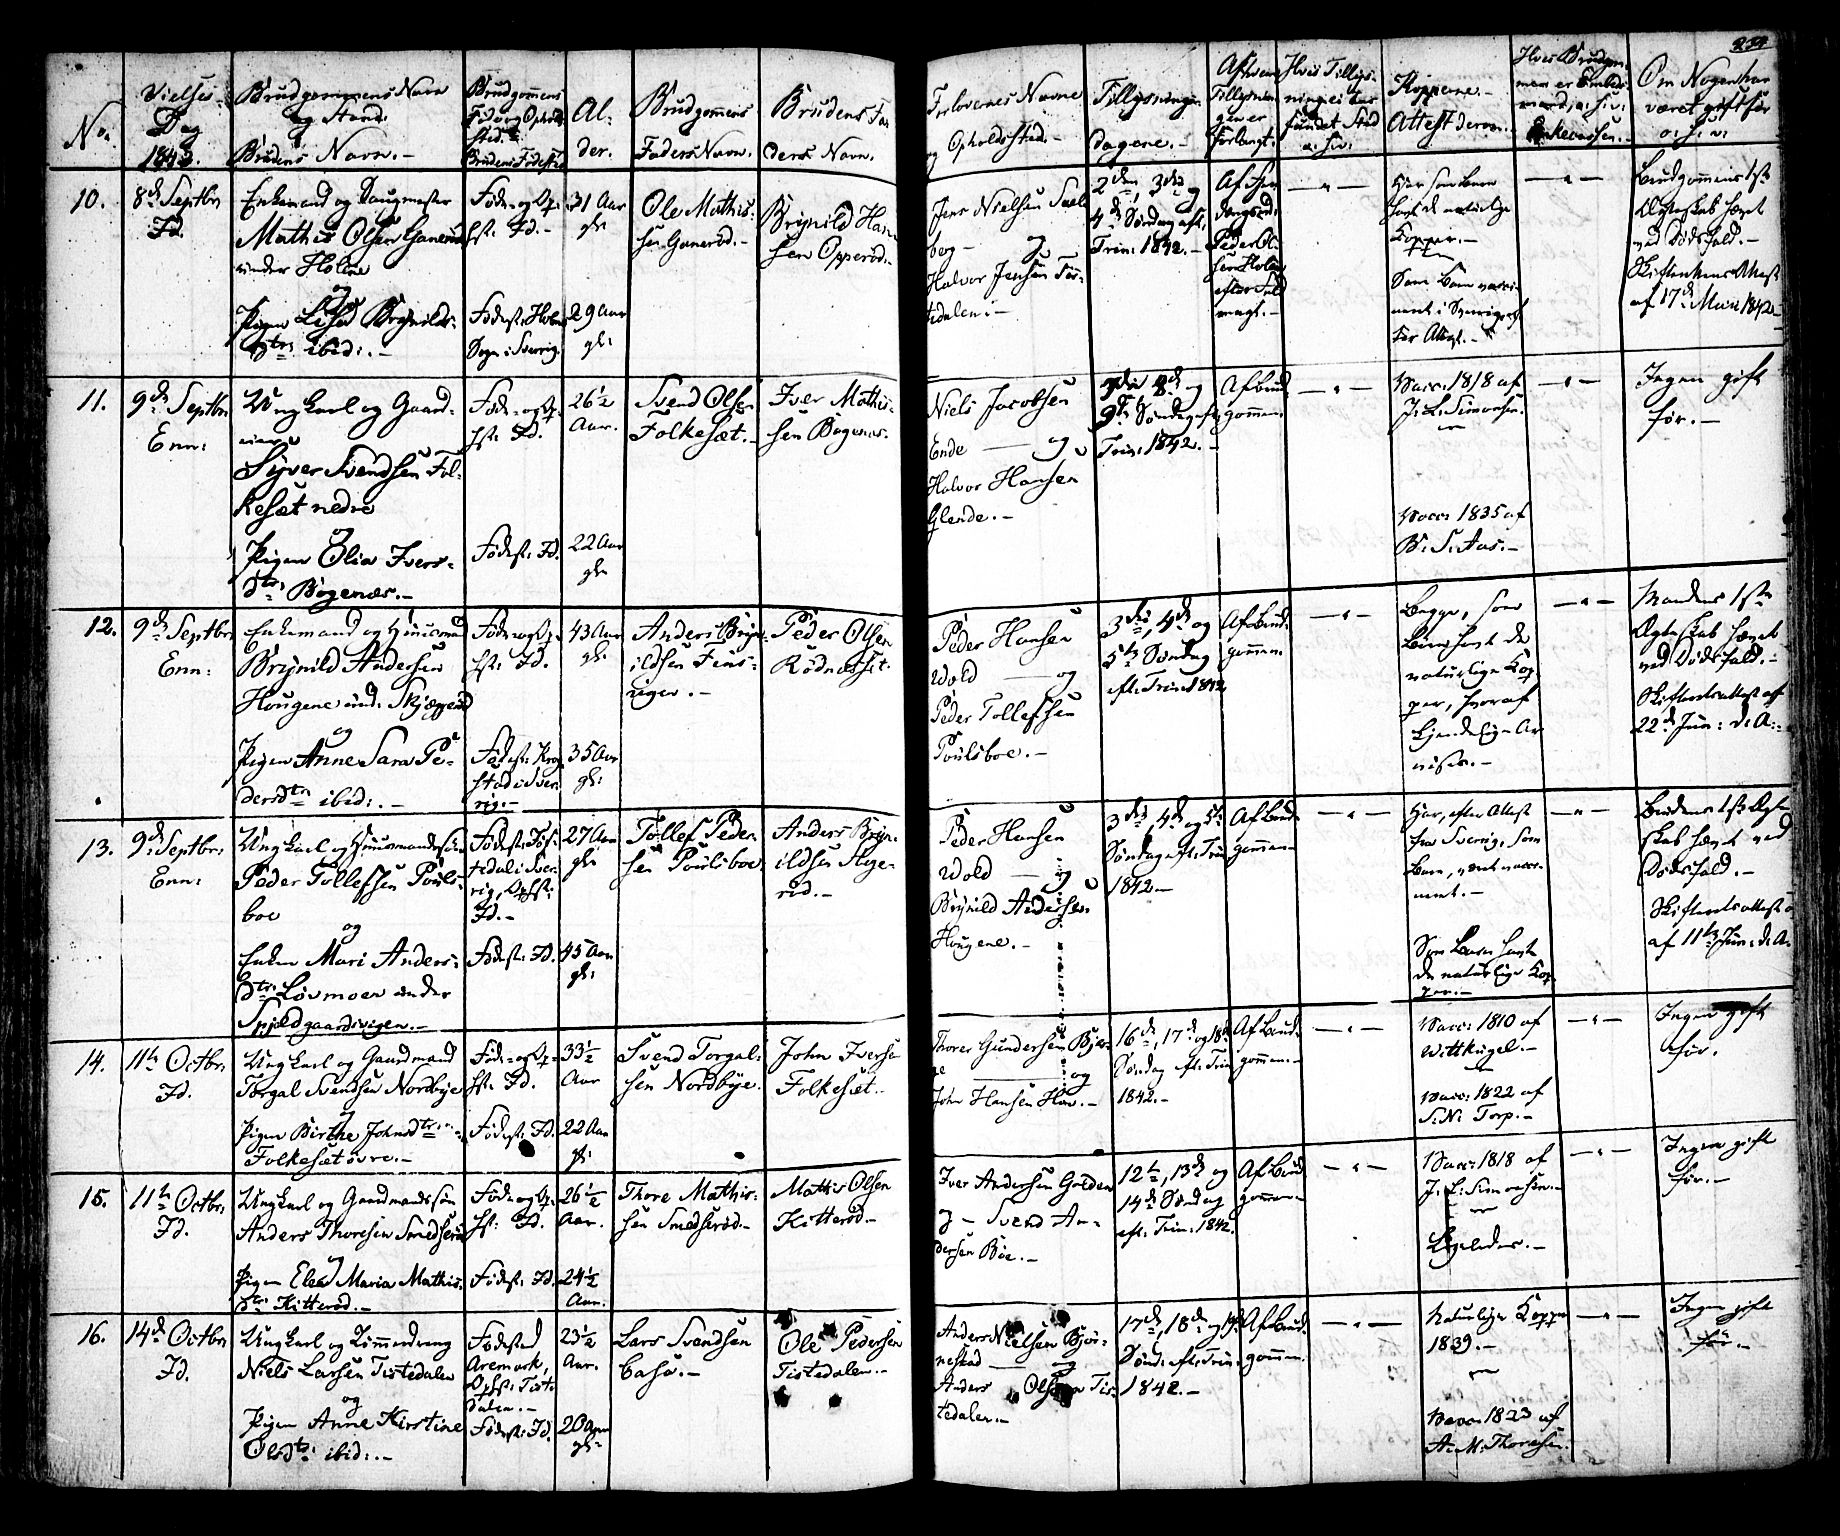 234
No.
Vielses-
Dag
1842.
Brudgommens Navn
og Stand.
Brudens Navn.-
Brudgommens
Føde og Opholds
Sted.-
Brudens Fødested
Al-
der.
Brudgommens
Faders Navn.
Brudens Fa-
ders Navn.
Forlovernes Navne
og Opholdssted.-
Tillysnings-
dagene.-
Af hvem
Tillysnin-
gen er
forlangt.
Hvis Tillys-
ning ei har
fundet Sted
o: s: v:
Kopperne.-
Attest derom.
Hvis Brudgom-
men er Embeds-
mand, o: s: v:
Enkecassen.-
Om Nogen har
været gift før
o: s: v:
10.
8de Septbr:
Fd.
Enkemand og Saugmester
Mathis Olsen Ganerød
under Holme
og
Pigen Lisa Brynilds-
dtr: ibid:.-
Føde- og Op-
hst: Fd.-
Fødest: Holms
Sogn i Sverrig.
31 Aar
gl:
29 Aar
gl:
Ole Mathis-
sen Ganerød.-
Brynild Han-
sen Opperød.-
Jens Nielsen Sael-
berg - og
Halvor Jensen Tis-
tedalen:-
2den, 3die og
4de Søndag eft:
Trin: 1842.-
Peder Ol-
sen Holm
efter Fuld
magt.-
-"-
Har som Barn
havt de naturlige
Kopper.-
Som Barn vacci-
neret i Sverrig eft
ter Attest.-
-"-
Brudgommens 1ste
Ægteskab hævet
ved Dødsfald.-
Skifterettens Attest
af 17de Mai 1842.-
11.
9de Septbr:
Enn:
Ungkarl og Gaard-
eier
Syver Svendsen Fol-
kesæt nedre
og
Pigen Olia Ivers-
dtr: Bøgenæs.-
Føde- og Op-
hst: Fd.
Fødest: Fd.
26½
Aar.
22 Aar
gl:
Svend Olsen
Folkesæt.-
Iver Mathis-
sen Bøgenæs.
Niels Jacobsen
Ende - og
Halvor Hansen
Glende.-
8de og
9de Søndag eft:
Trin: 1842.-
Af Brud-
gommen.
-"-
Vacc: 1818 af
J: L: Simonsen.
Vacc: 1835 af
B: S: Aas.-
-"-
Ingen gift
før.-
12.
9de Septbr:
Enn:
Enkemand og Huusmand
Brynild Andersen
Hougene und: Skjæggerød
og
Pigen Anne Sara Pe-
dersdtr ibid:.-
Føde- og Op-
hst: Fd.
Fødest: Krog-
stad i Sver-
rig.-
43 Aar
gl:
35 Aar
gl:
Anders Bryn-
ildsen Fins-
rigen.-
Peder Olsen
Rødnæsset.
Peder Hansen
Wold - og
Peder Tollefsen
Poulsboe.-
3die, 4de og
5te Søndag
eft: Trin: 1842
Af Brud-
gommen.
-"-
Begge, som
Børn havt de
naturlige Kop-
per, hvoraf
kjendelige Ar
vises.-
-"-
Mandens 1ste
Ægteskab hævet
ved Dødsfald.-
Skifteretsattest af
22de Jun: d: A:
13.
9de Septbr:
Enn:
Ungkarl og Huusmandssøn
Peder Tollefsen Pouls-
boe
og
Enken Mari Anders-
dtr: Løvmoen under
Spjeldgaardsvigen.-
Fødest: Tis-
tedal i Sver-
rig, Ophst:
Fd.-
Fødest: Fd.
27 Aar
gl:
45 Aar
gl:
Tollef Peder-
sen Poulsboe.
Anders Bryn-
ildsen Hage-
rød.-
Peder Hansen
Wold - og
Brynild Andersen
Hougene.-
3die, 4de og 5te
Søndag eft: Trin
1842.-
Af Brud-
gommen.
-"-
Har, efter Attest
fra Sverrig, som
Barn, været vacci-
neret.-
Som Barn havt
de naturlige Kop-
per.-
-"-
Brudens 1ste Ægte-
skab hævet ved
Dødsfald.-
Skifteretsattest
af 11te Jun: d: A:
14.
11te Octbr:
Fd.
Ungkarl og Gaardmand
Torgal Svendsen Nordbye
og
Pigen Birthe Johnsdtr
Folkesæt øvre.-
Føde- og Op-
hst: Fd.
Fødest: Fd.
33½
Aar
22 Aar
gl:
Svend Torgal-
sen Nordbye.
John Iversen
Folkesæt.-
Thorer Gundersen Bjer-
ge - og
John Hansen How.-
16de, 17de og 18de
Søndag eft: Trin
1842.-
Af Brud-
gommen.
-"-
Vacc: 1810 af
Wittkugel.-
Vacc: 1822 af
S: N: Torp.-
-"-
Ingen gift
før.
15.
11te Octbr:
Fd.
Ungkarl og Gaardmandssøn
Anders Thoresen Smedserød
og
Pigen Elea Maria Mathis-
dtr: Kitterød.-
Føde- og Op-
hst: Fd.
Fødest: Fd.
26½
Aar.
24½
Aar.
Thore Mathis-
sen Smedserød.-
Mathis Olsen
Kitterød.-
Iver Andersen Golden
og - Svend An-
dersen Bøe.-
12te, 13de og
14de Søndag
eft: Trin: 1842.
Af Brud-
gommen.
-"-
Vacc: 1818 af
J: L: Simonsen.-
Ligeledes.-
-"-
Ingen gift
før.-
16.
14de Octbr:
Fd.
Ungkarl og Tømmerdreng
Niels Larsen Tistedalen
og
Pigen Anne Kirstine
Olsdtr: ibid:.-
Fødested
Aremark,
Ophst: Tiste-
dalen.-
Fødest: Fd.
23½
Aar.
20 Aar
gl:
Lars Svendsen
Casa.-
Ole Pedersen
Tistedalen.-
Anders Nielsen Bjør-
nestad - og
Anders Olsen Tis-
tedalen.-
17de, 18de og 19de
Sønd: eft: Trin:
1842.-
Af Brud-
gommen.
-"-
Naturlige Kopper
1839.-
Vacc: 1823 af
A: M: Thoresen.
-"-
Ingen gift
før.-